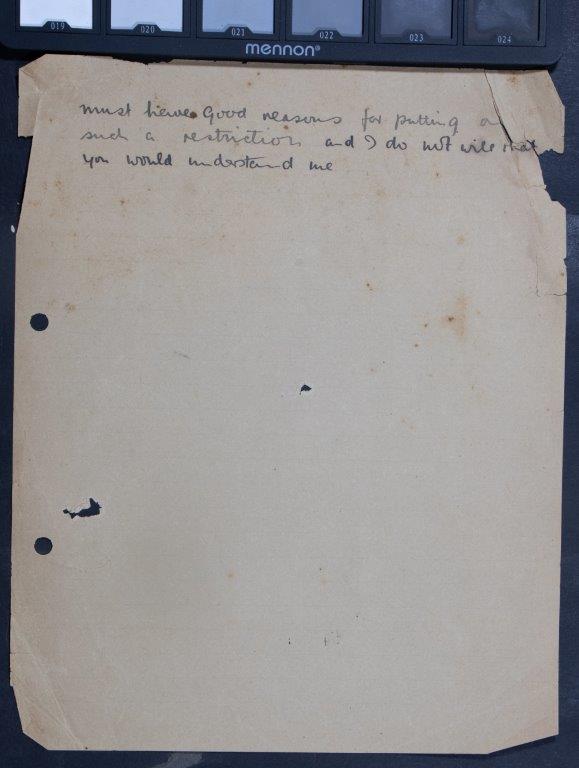 019 020 021 022 023 024
mennon®
must have Good reasons for putting on
such a restriction and I do not wile that
you would understand me